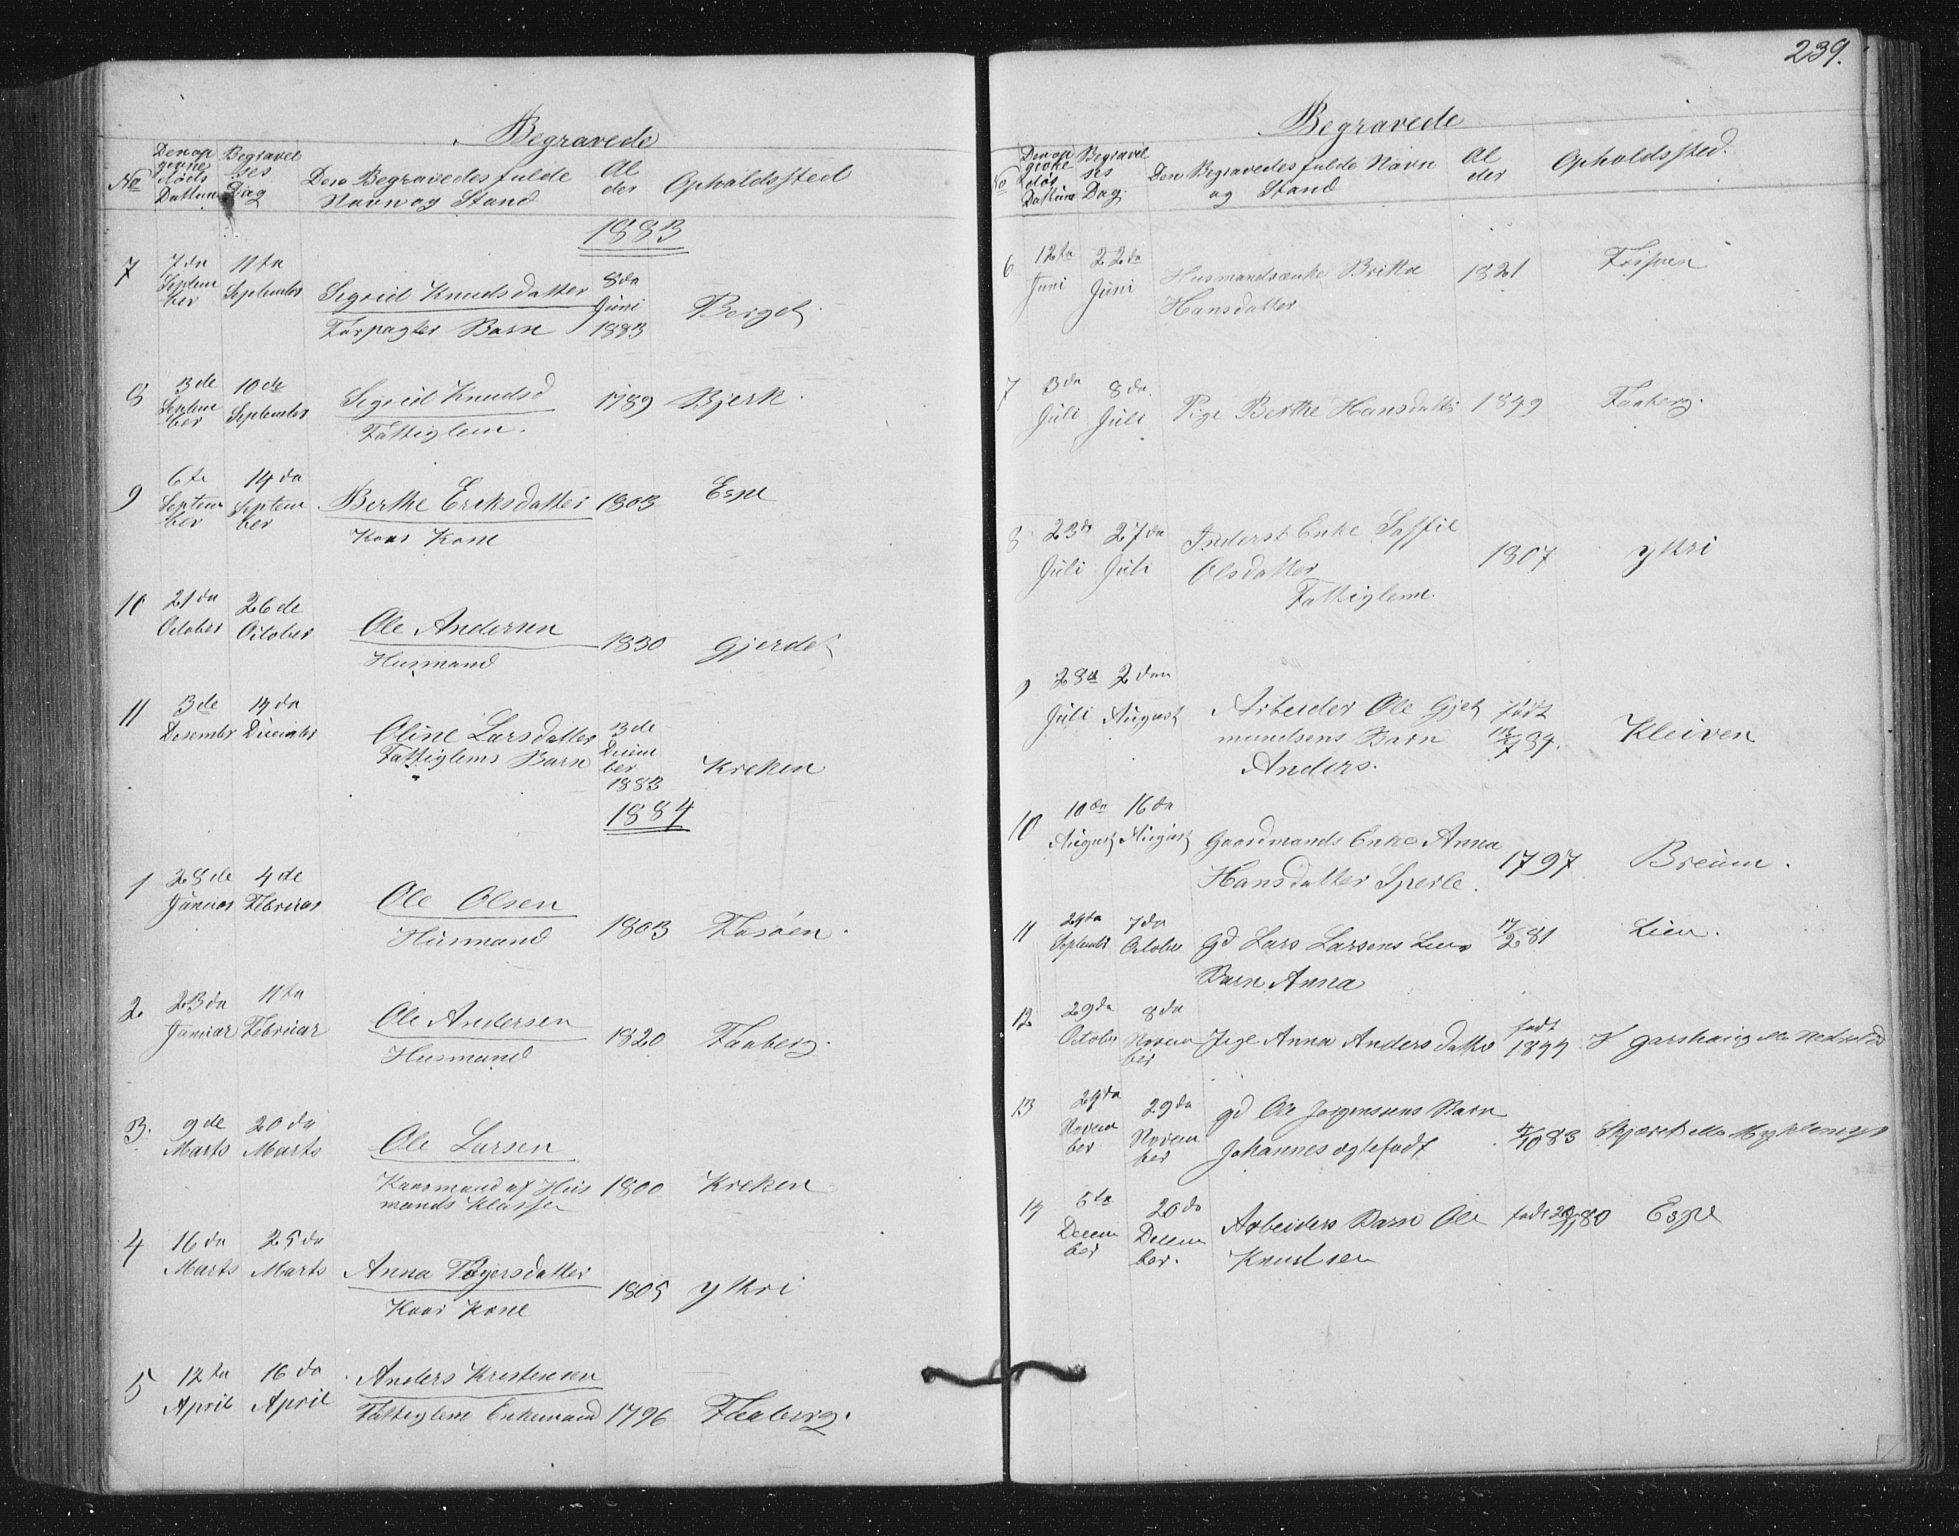 Begravede
No Den op givne døds Dattum Begravel ses Dag Den Begravedes fulde Navn og Stand Al der Opholdssted
1883
7 7da Septem ber 11ta September Sigrid Knudsdatter Forpagter Barn 8da Juni 1883 Berget
8 3de Septem ber 10de September Sigrid Knudsd Fattiglem. 1789 Bjerk.
9 6te Septem ber 14da Septem ber Berthe Eriksdatter Kaar Kone 1803 Espe
10 21da October 26de October Ole Andersen Husmand 1830 Gjerdet
11 3de Desember 14da December Oline Larsdatter Fattiglems Barn 3de Decem ber 1883 Kreken
1884
1 28de Januar 4de Februar Ole Olsen Husmand 1803
2 23da Januar 11ta Februar Ole Andersen Husmand 1820 Faaberg.
3. 9de Marts 20da Marts Ole Larsen Kaarmand af Hus mands Klasse 1800 Kreken
4 16da Marts 25da Marts Anna Tøgersdatter Kaar Kone 1805 Ytri
5 12ta April 16da April Anders Kristensen Fattiglem Enkemand 1796 Faaberg.
239.
Begravede
No Den op givne døs Dattum Begravel ses Dag. Den Begravedes fulde Navn og Stand Al der Opholdssted.
6 12ta Juni 22da Juni Husmandsenke Britta Hansdatter 1821
7 3da Juli 8da. Juli Pige Berthe Hansdatter 1849 Faaberg.
8 23da Juli 27da Juli Inderst Enke Olsdatter Fattiglem. 1807 Ytri
9 28d Juli 2den August Arbeider Ole Gjet mundsens Barn Anders. født Kleiven
10 10da August 16da August Gaardmands Enke Anna Hansdatter Sperle. 1797 Breum.
11 September 7da October Gd Lars Larsens Lien Barn Anna 17/2 81 Lien.
12 29da October 8da Novem ber Pige Anna Andersdatter født 1844
13 24da Novem ber 29da Novem ber gd Ole Jørgensens Barn Johannes ægtefødt 83
14 5ta Decem ber 20da Decem ber. Arbeiders Barn Ole Knudsen født 80 Espe